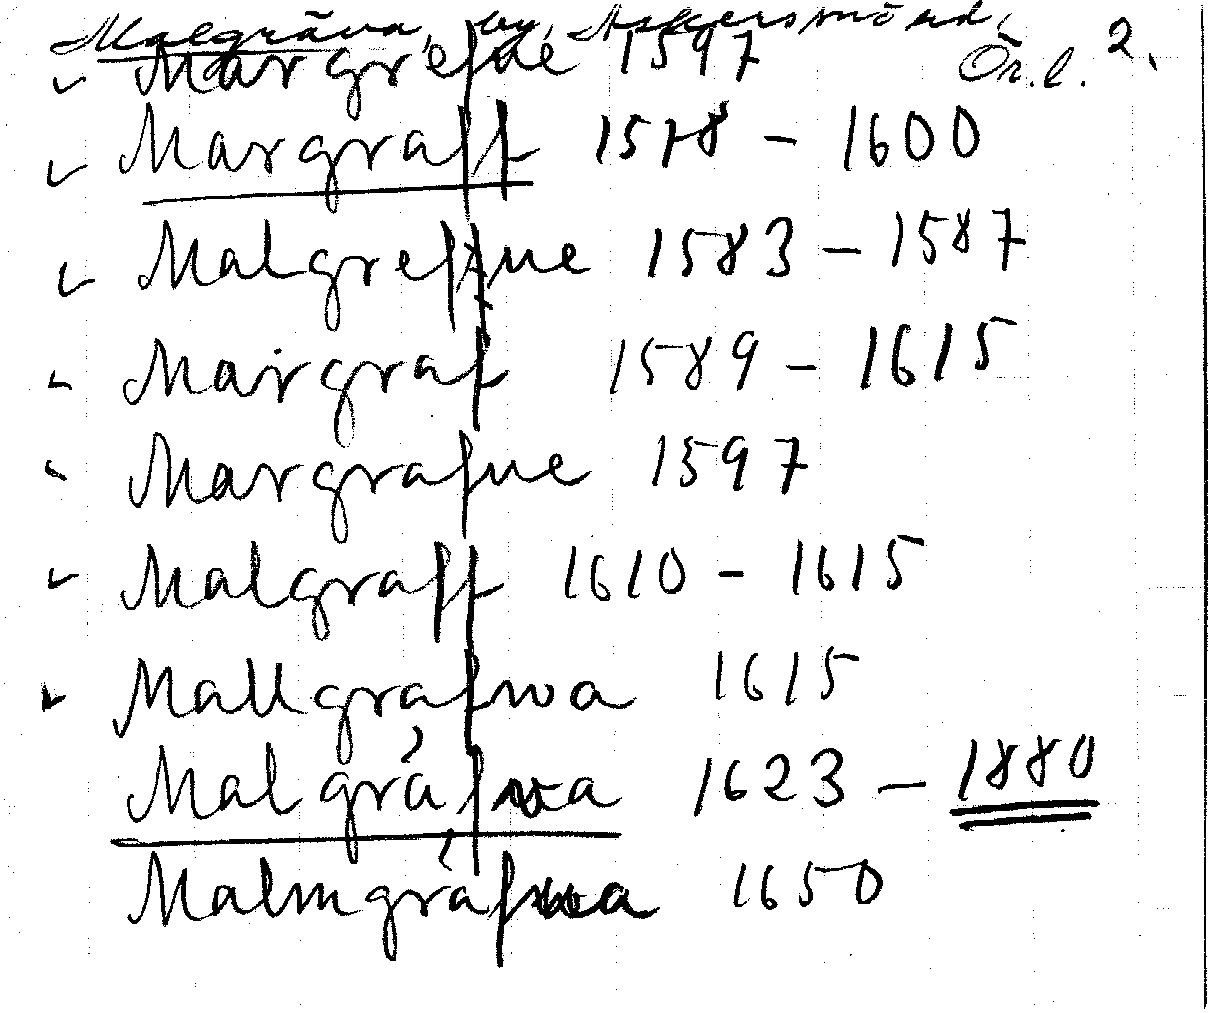 Malgräva, by, Askersund, Ör.l. 2.
Margrefue 1597
Margraff 1578 – 1600
Malgreffue 1583 – 1587
Margraf 1589 – 1615
Margrafue 1597
Malgraff 1610 – 1615
Mallgrafwa 1615
Malgråfwa 1623 – 1880
Malmgräfwa 1650